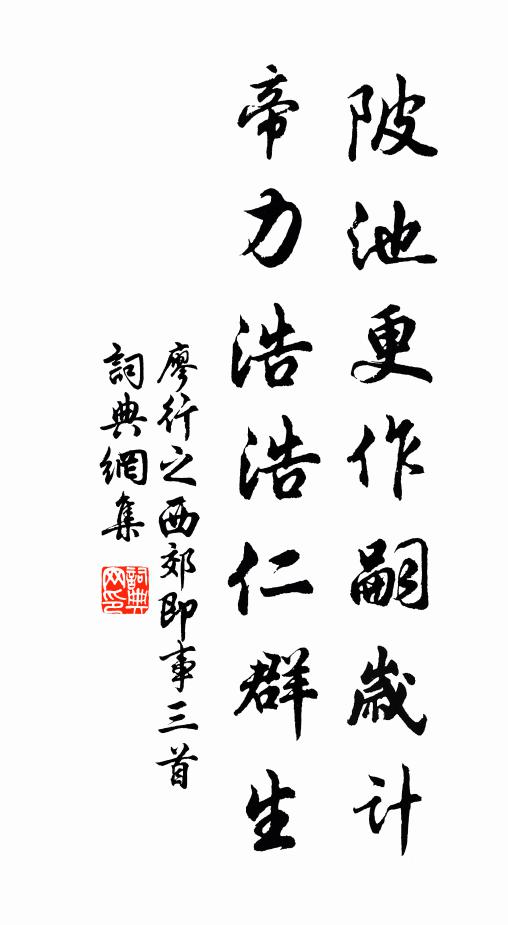 陂池更作嗣歲計
帝力浩浩仁群生
廖行之西郊即事三首
詞典網集
詞典網印